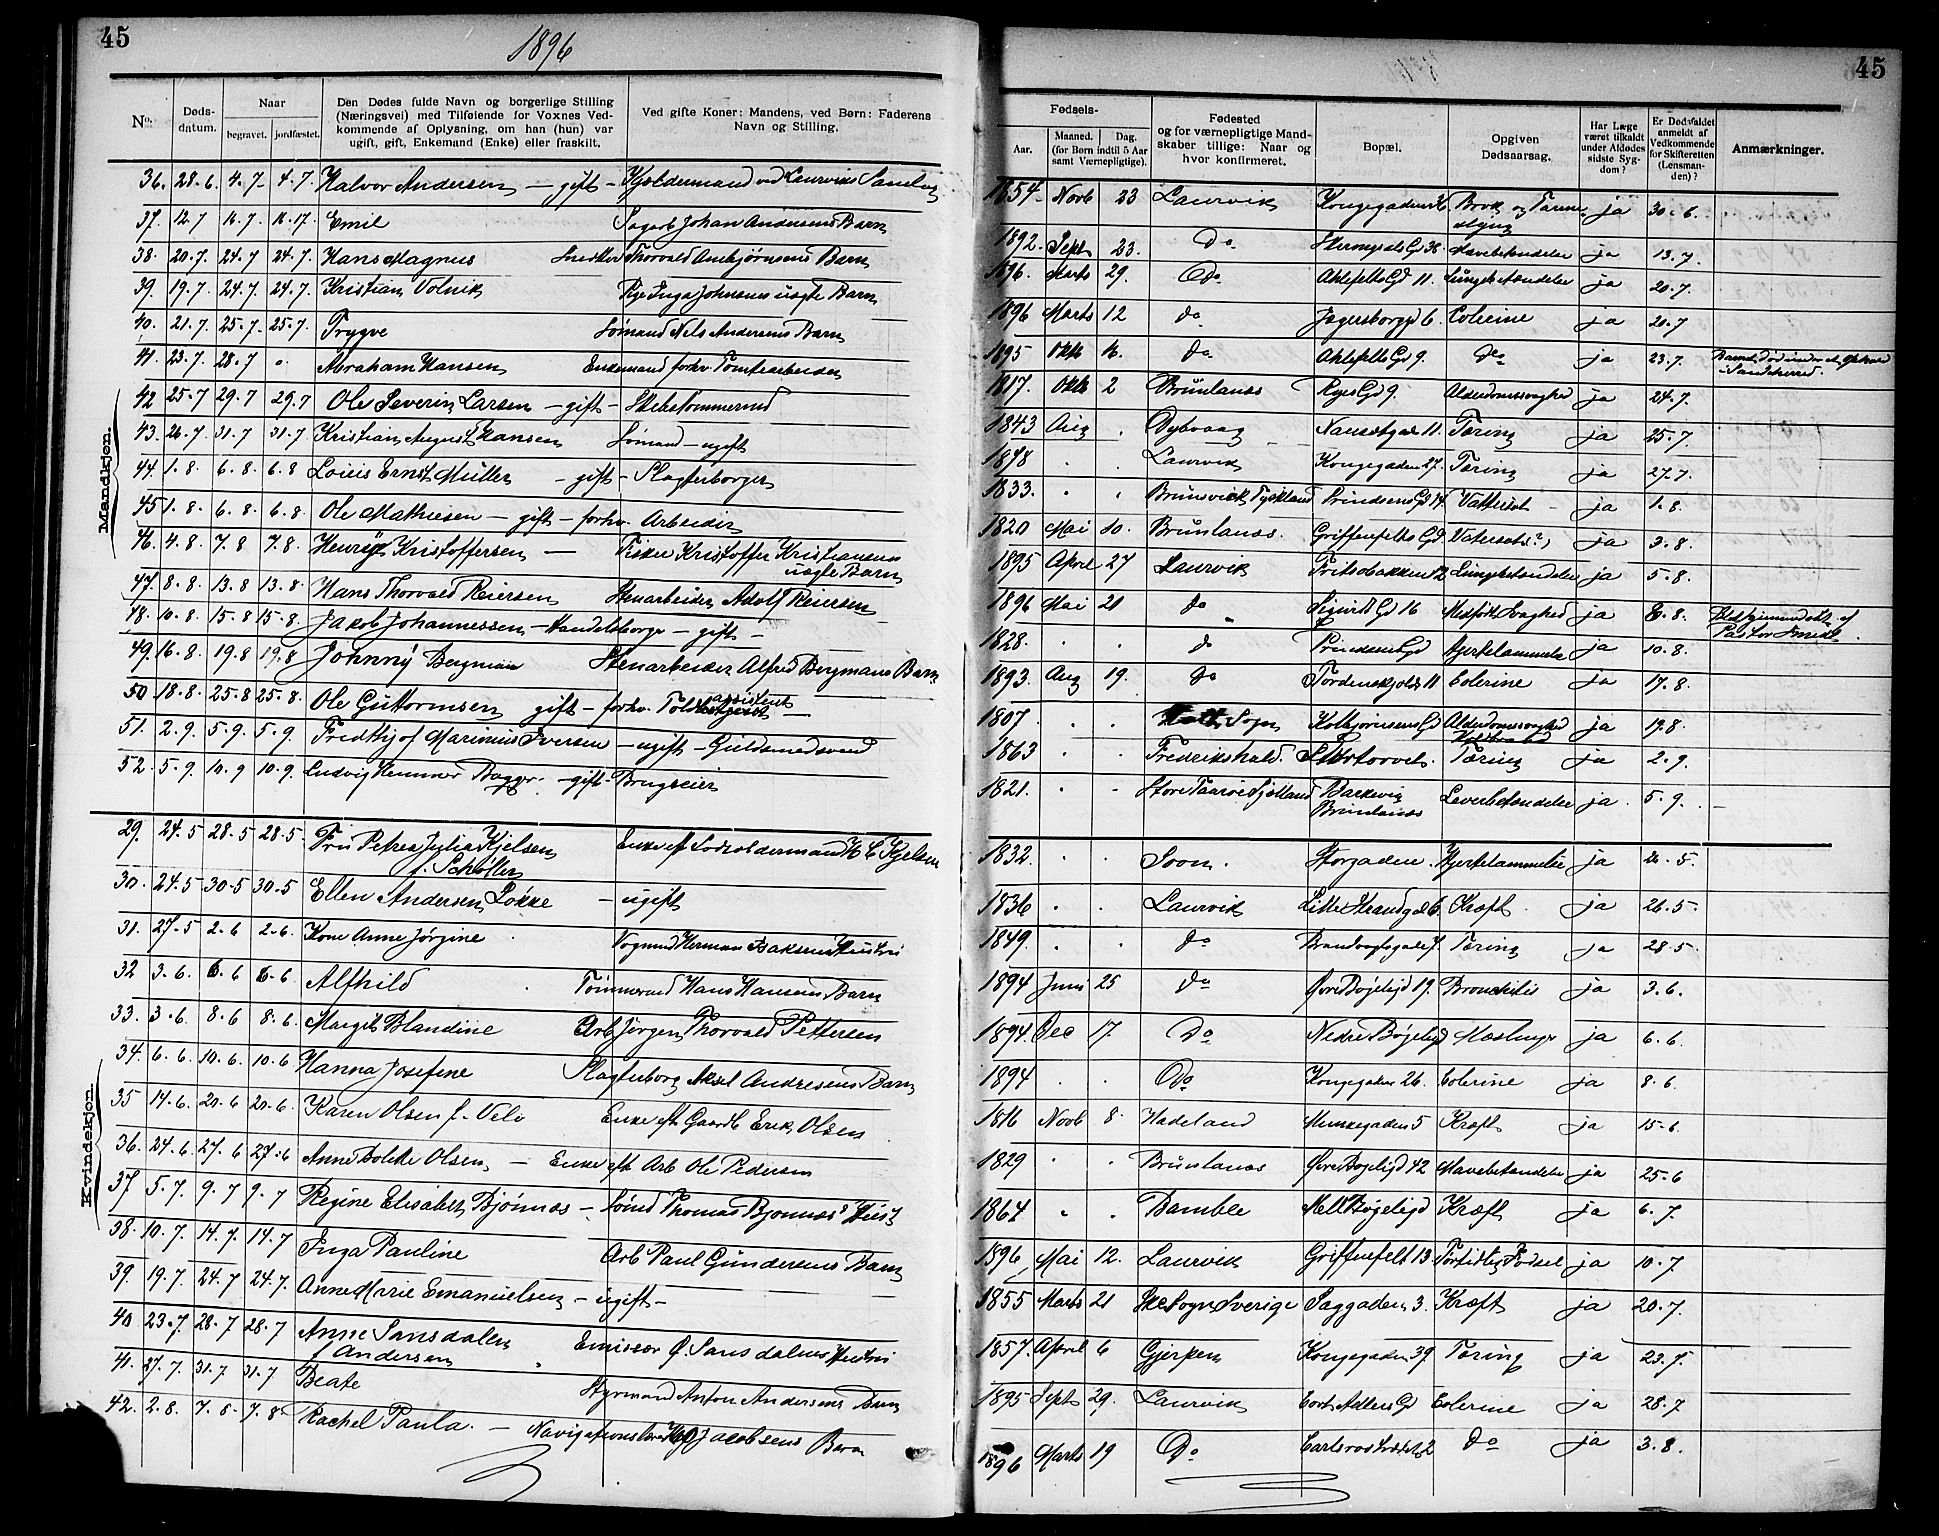 45
1896
45
No.
Døds-
datum.
Naar
begravet. jordfæstet.
Den Dødes fulde Navn og borgerlige Stilling
(Næringsvei) med Tilføiende for Voxnes Ved-
kommende af Oplysning, om han (hun) var
ugift, gift, Enkemand (Enke) eller fraskilt.
Ved gifte Koner: Mandens, ved Børn: Faderens
Navn og Stilling.
Fødsels-
Aar.
Maaned. Dag.
(for Børn indtil 5 Aar
samt Værnepligtige).
Fødested
og for værnepligtige Mand-
skaber tillige: Naar og
hvor konfirmeret.
Bopæl.
Opgiven
Dødsaarsag.
Har Læge
været tilkaldt
under Afdødes
sidste Syg-
dom?
Er Dødsfaldet
anmeldt af
Vedkommende
for Skifteretten
(Lensman-
den)?
Anmærkninger.
Mandkjøn.
36. 28.6. 4.7. 4.7. Halvor Andersen – gift – 1854. Novb 23 Laurvik Kongegaden Brok og Tarm ja 30.6.
37. 12.7 16.7. 16.17. Emil Johan Andersens Barn 1892. Sept 23. do 38. Mavebetændelse ja 13.7.
38. 20.7. 24.7 24.7. Hans Magnus Snedker Thorvald Ambjørnsens Barn 1896. Marts 29. do Ahlefelts Gd 11. Lungebetændelse ja 20.7.
39. 19.7. 24.7. 24.7. Kristian Volrik Pge Inga Johnsens uægte Barn 1896 Marts 12 do Jegersborggd 6. Colerine ja 20.7
40. 21.7. 25.7. 25.7. Trygve Sømand Nils Andersens Barn 1895 Okt 16. do Ahlefelts Gd 9. do ja 23.7. Barnet død under et Ophold
i Sandeherred.
41. 23.7. 28.7 " Abraham Hansen Enkemand forhv. Tomtearbeider 1817. Okt 2 Brunlanæs Reyes Gd 9. Alderdomssvaghed ja 24.7.
42 25.7 29.7 29.7 Ole Severin Larsen – gift – Skibstømmermd 1843 Aug . Dybvaag Nansetgad 11. Tæring ja 25.7
43. 26.7. 31.7 31.7 Kristian August Hansen Sømand – ugift 1878 . . Laurvik Kongegaden 27. Tæring ja 27.7.
44. 1.8. 6.8. 6.8 Louis Ernst Müller – gift – Slagterborger 1833. . . Brunsvick, Tyskland Prindsens Gd 14. Vattersot – ja 1.8.
45 1.8. 6.8. 6.8. Ole Mathiesen – gift – forhv. Arbeider 1820 Mai 10. Brunlanæs. Griffenfelts Gd Vatersots(?) ja 3.8.
46. 4.8. 7.8 7.8. Henrik Kristoffersen – Fisker Kristoffer Kristiansens
uægte Barn 1895 April 27 Laurvik Fritsøbakken 12 Lungebetændelse ja 5.8.
47. 8.8. 13.8 13.8. Hans Thorvald Reiersen Stenarbeider Adolf Reiersen 1896 Mai 21 do Sigurds Gd 16 Medfødt Svaghed ja 8.8. Hjemmedøbt af
Pastor
48. 10.8. 15.8 15.8. Jakob Johannessen – Handelsborger – gift – 1828. . do Prindsens Gd Hjertelammelse ja 10.8.
49. 16.8. 19.8 19.8 Johnny Bergman Stenarbeider Alfred Bergmans Barn 1893. Aug 19. do Tordenskjolds 11 Colerine ja 17.8.
50 18.8. 25.8 25.8. Ole Guttormsen gift – forhv. Toldassistent – 1807 . . Sogn Kolbjørnsens Gd Alderdomssvaghed ja 19.8.
51. 2.9. 5.9. 5.9. Fredthjof Marinius Iversen – ugift – Guldsmedsvend 1863 . . Fredrikshald. Storetorvet. Tæring ja 2.9.
52. 5.9. 10.9 10.9. Ludvig Hemmer Bagger – gift – Brugseier 1821. . . Store Taarøie Sjælland Barkevig
Brunlanæs Leverbetændelse ja. 5.9. –
Kvindekjøn.
29. 24.5 28.5 28.5. Fru Petrea Julia Kjelsen
f. Schøller Enke ef Lodsoldermand H C Kjelsen 1832. . . Soon. Storgaden. Hjertelammelse ja 26.5.
30. 24.5 30.5 30.5 Ellen Andersen Løkke – ugift 1836 . . Laurvik Lille Strandgd 6. Kræft. ja 26.5.
31. 27.5 2.6 2.6. Kone Anne Jørgine Vognmd Herman Isaksens Hustru 1849. . do Brandvagtsgade 7. Tæring ja 28.5.
32 3.6. 6.6 6.6 Alfhild Tømmermd Hans Hansens Barn 1894 Juni 25 do Øvre Bøgeligd 19. Bronchitis ja 3.6.
33. 3.6. 8.6 8.6. Margit Blandine Arb Jørgen Thorvald Pettersen 1894. Dec 17. Do Nedre Bøgeligd Mæslinger ja 6.6.
34. 6.6. 10.6. 10.6 Hanna Josefine Slagterborg Aksel Andresens Barn 1894 . . Do Kongegaden 26. Colerine ja 8.6.
35 14.6. 20.6 20.6. Karen Olsen f. Velo Enke eft Gaardb Erik Olsen 1816 Novb 8. Hadeland Munkegaden 5 Kræft ja 15.6.
36. 24.6 27.6 27.6 Anne Bolette Olsen, – Enke eft Arb Ole Pedersen 1829 . . Brunlanæs Øvre Bøgeligd 42 Mavebetændelse ja 25.6
37 5.7. 9.7 9.7 Regine Elisabet Bjønnæs – Sømd Thomas Bjønnæs' Hust 1864 " . Bamble Mell Bøgeligd Kræft ja 6.7.
38. 10.7. 14.7. 14.7 Inga Pauline Arb Paul Gundersens Barn 1896 Mai 12. Laurvik Griffenfelt 13. Fortidlig Fødsel ja 10.7.
39. 19.7. 24.7 24.7. Anne Marie Emanuelsen – ugift – 1855 Marts 21 Sogn, Sverige Saggaden 3. Kræft ja 20.7.
40 23.7. 28.7 28.7 Anne Sansdalen
f Andersen Emissær Ø. Sansdalens Hustru 1857. April 6 Gjerpen Kongegaden 39 Tæring ja 23.7.
41. 27.7. 31.7. 31.7 Beate Styrmand Anton Andersens Barn 1895 Sept 29. Laurvik Cort Adlers Gd Colerine ja 28.7
42. 2.8. 7.8. 7.8. Rachel Paula. – Navigationslærer Jacobsens Barn 1896 Marts 19 Do Carlsrostrædet 2 do ja 3.8.